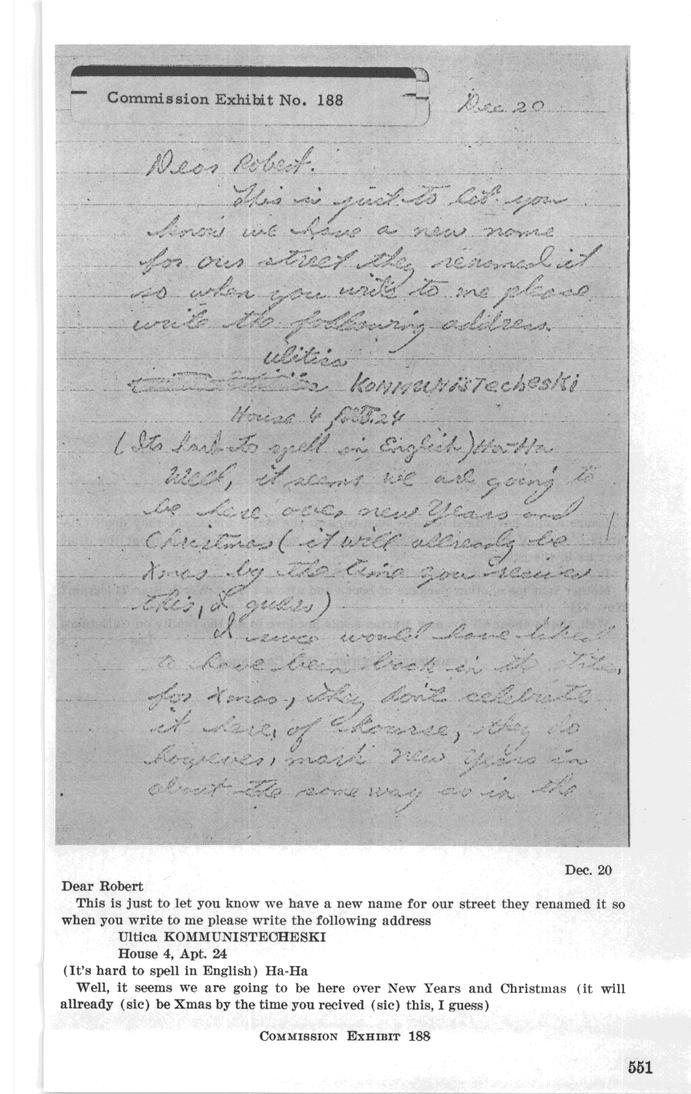 Commission Exhibit No. 188
Dec 20
Dear Robert.
This is just to let you
know we have a new name
for our street they renamed it
so when you write to me please
write the following address
Ulitica
KOMMUNISTecheski
House 4, APT. 24
(Its hard to spell in English) Ha-Ha
Well, it seems we are going to
be here over new Years and
Christmas (it will allready be
Xmas by the time you recive
this, I guess)
I sure would have liked
to have been back in the States
for Xmas, they don't celebrate
it here, of kourse, they do
however, mark new years in
about the same way as in the
Dec. 20
Dear Robert
This is just to let you know we have a new name for our street they renamed it so
when you write to me please write the following address
Ultica KOMMUNISTECHESKI
House 4, Apt. 24
(It's hard to spell in English) Ha-Ha
Well, it seems we are going to be here over New Years and Christmas (it will
allready (sic) be Xmas by the time you recived (sic) this, I guess)
COMMISSION EXHIBIT 188
551